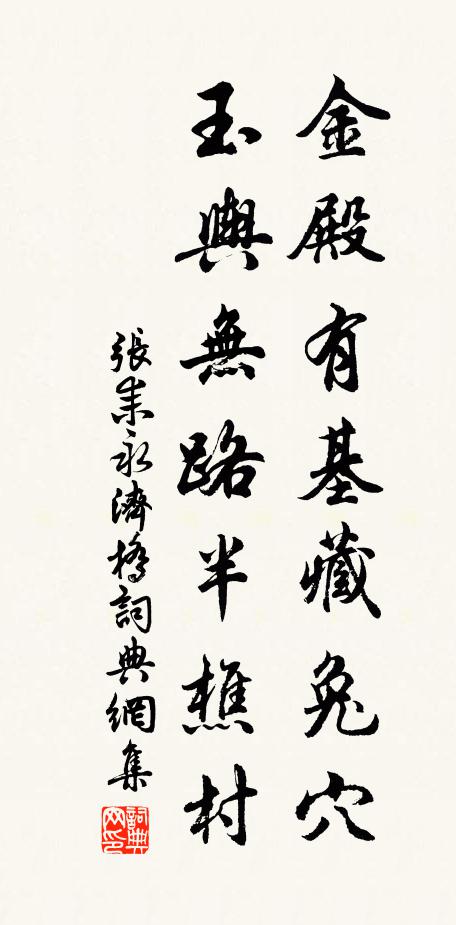 金殿有基藏兔穴
玉輿無路半樵村
張耒永濟橋詞典網集
詞典网印